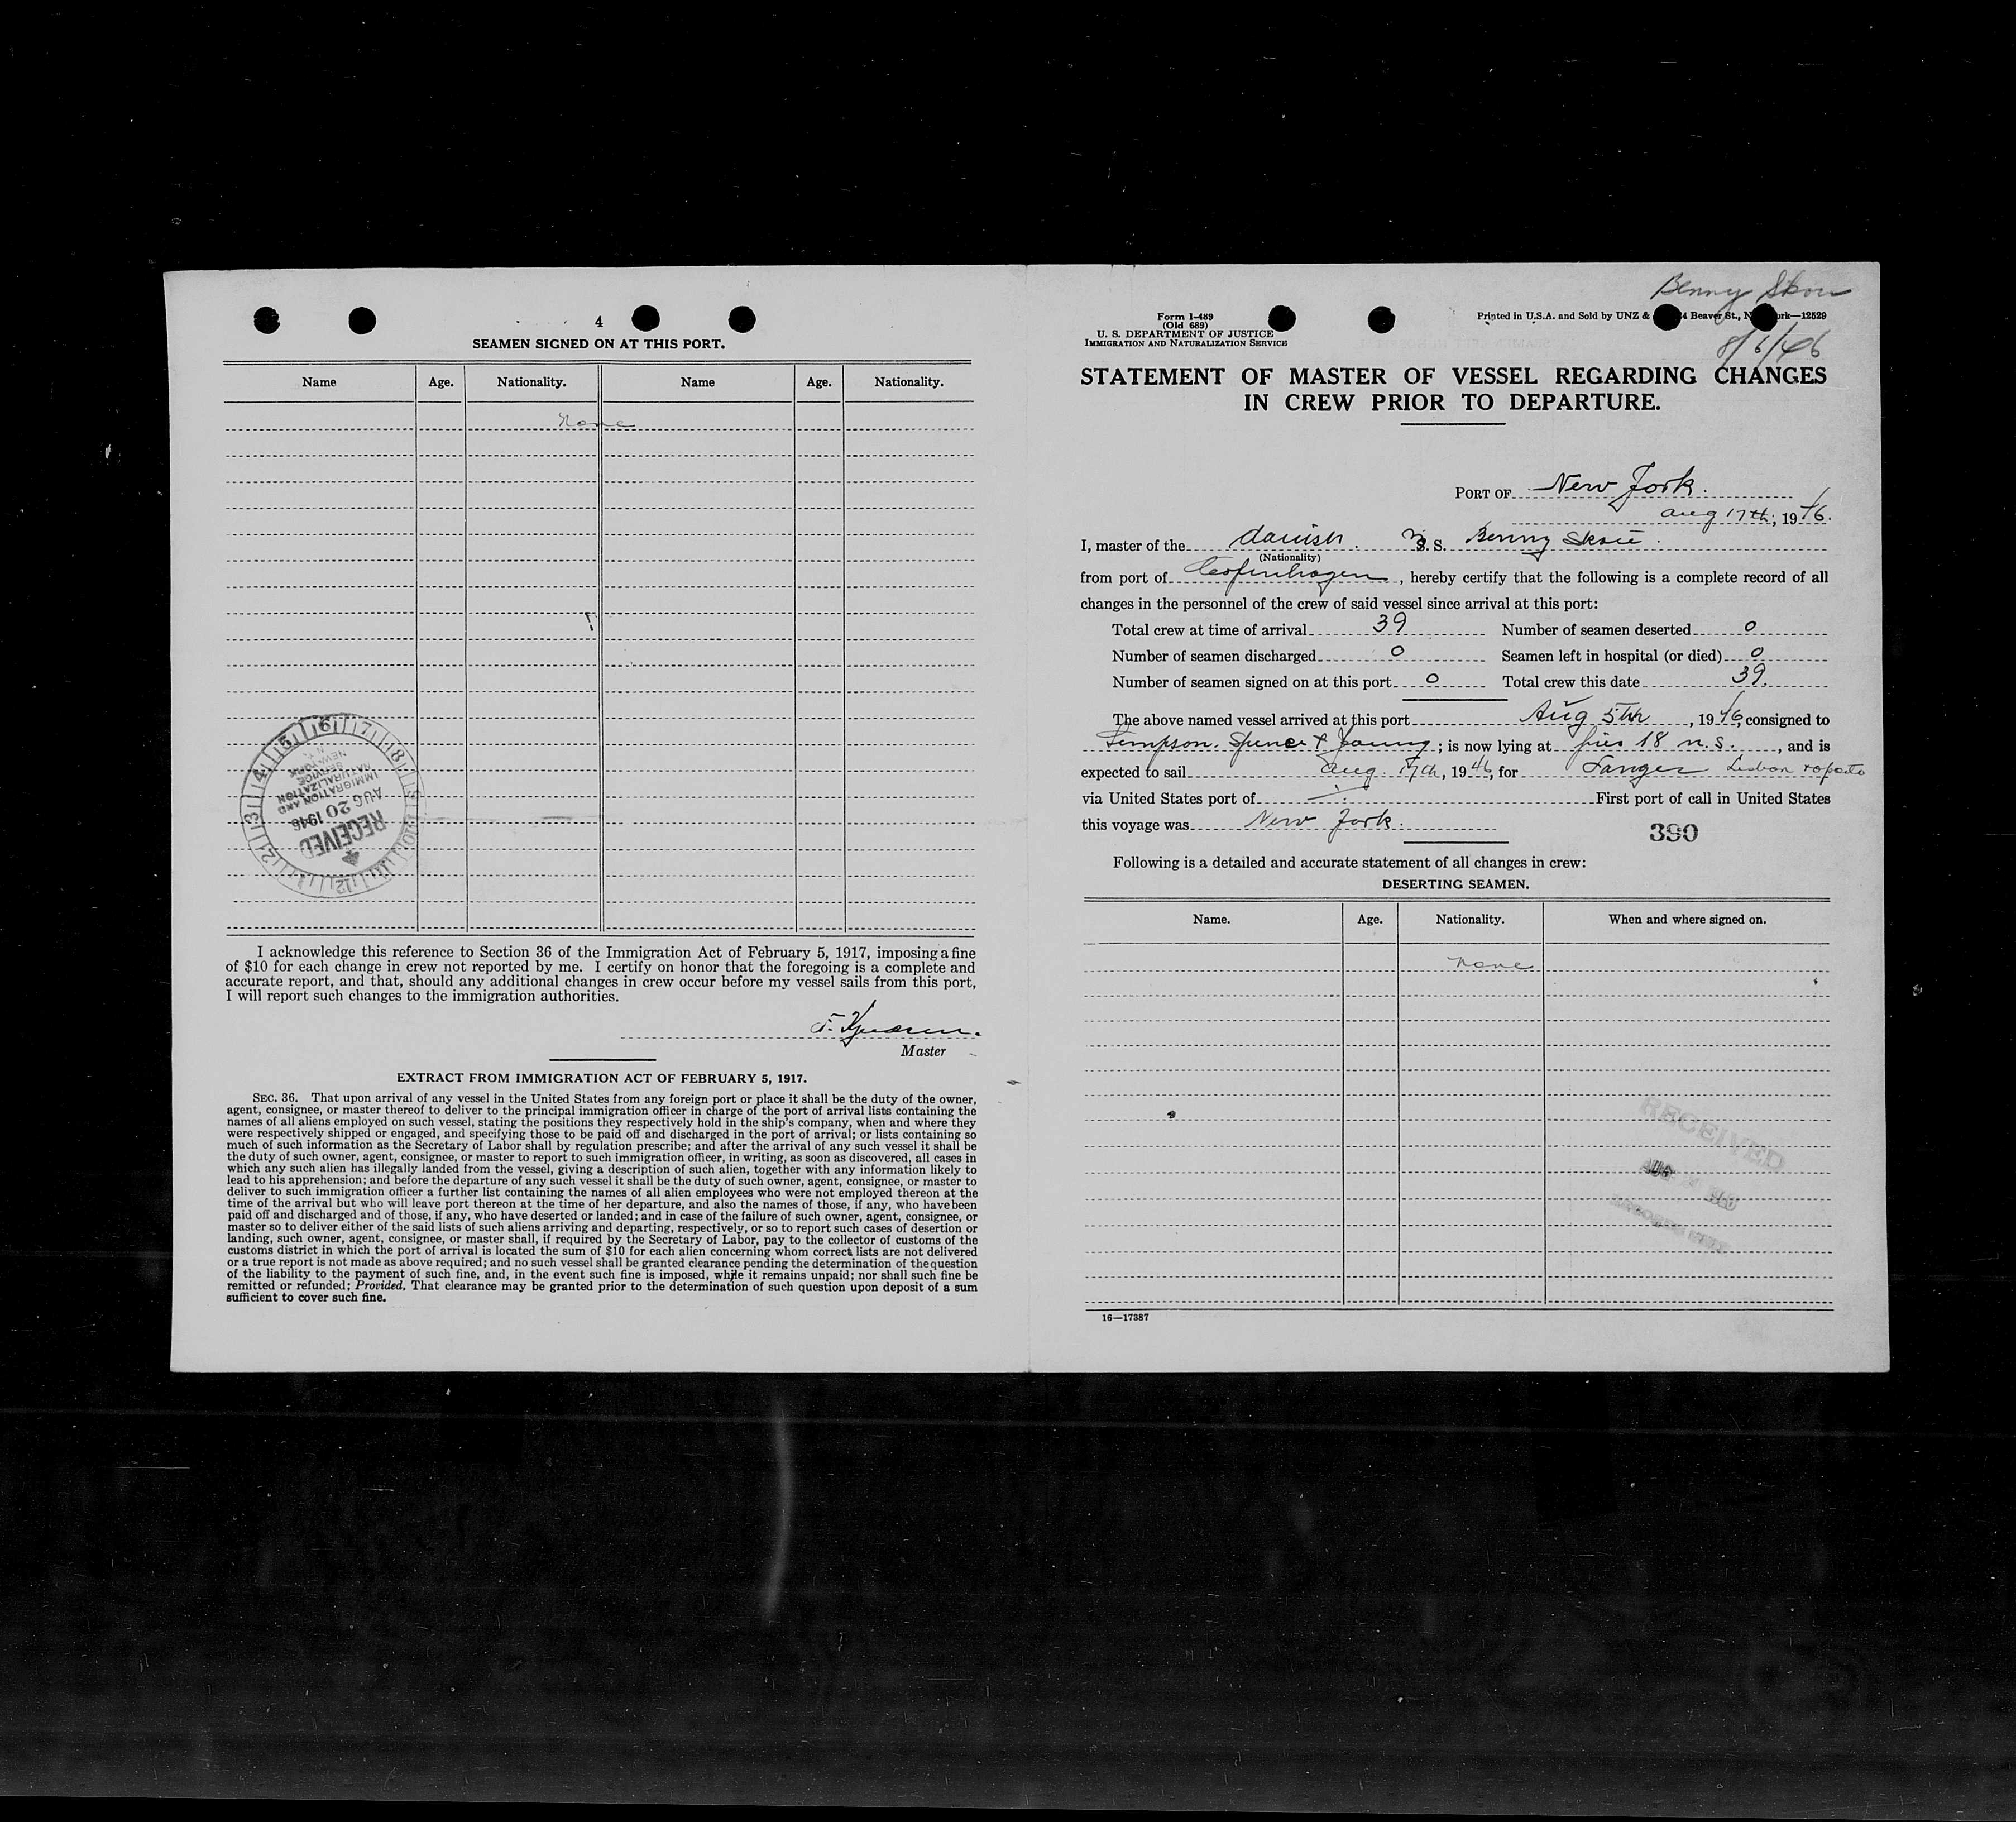 4
SEAMEN SIGNED ON AT THIS PORT.
Name Age. Nationality. Name Age. Nationality.
None
6 7 8 9 10 11 12 1 2 3 4 5
RECEIVED
AUG 20 1946
IMMIGRATION AND
NATURALIZATION
SERVICE
NEW YORK
N.Y.
I acknowledge this reference to Section 36 of the Immigration Act of February 5, 1917, imposing a fine
of $10 for each change in crew not reported by me. I certify on honor that the foregoing is a complete and
accurate report, and that, should any additional changes in crew occur before my vessel sails from this port,
I will report such changes to the immigration authorities.
Master
EXTRACT FROM IMMIGRATION ACT OF FEBRUARY 5, 1917.
SEC. 36. That upon arrival of any vessel in the United States from any foreign port or place it shall be the duty of the owner,
agent, consignee, or master thereof to deliver to the principal immigration officer in charge of the port of arrival lists containing the
names of all aliens employed on such vessel, stating the positions they respectively hold in the ship's company, when and where they
were respectively shipped or engaged, and specifying those to be paid off and discharged in the port of arrival; or lists containing so
much of such information as the Secretary of Labor shall by regulation prescribe; and after the arrival of any such vessel it shall be
the duty of such owner, agent, consignee, or master to report to such immigration officer, in writing, as soon as discovered, all cases in
which any such alien has illegally landed from the vessel, giving a description of such alien, together with any information likely to
lead to his apprehension; and before the departure of any such vessel it shall be the duty of such owner, agent, consignee, or master to
deliver to such immigration officer a further list containing the names of all alien employees who were not employed thereon at the
time of the arrival but who will leave port thereon at the time of her departure, and also the names of those, if any, who have been
paid off and discharged and of those, if any, who have deserted or landed; and in case of the failure of such owner, agent, consignee, or
master so to deliver either of the said lists of such aliens arriving and departing, respectively, or so to report such cases of desertion or
landing, such owner, agent, consignee, or master shall, if required by the Secretary of Labor, pay to the collector of customs of the
customs district in which the port of arrival is located the sum of $10 for each alien concerning whom correct lists are not delivered
or a true report is not made as above required; and no such vessel shall be granted clearance pending the determination of the question
of the liability to the payment of such fine, and, in the event such fine is imposed, while it remains unpaid; nor shall such fine be
remitted or refunded; Provided, That clearance may be granted prior to the determination of such question upon deposit of a sum
sufficient to cover such fine.
Benny Skou
8/6/46
Form I-489
(Old 689)
U. S. DEPARTMENT OF JUSTICE
IMMIGRATION AND NATURALIZATION SERVICE
Printed in U.S.A. and Sold by UNZ & 4 Beaver St., N ork—12529
STATEMENT OF MASTER OF VESSEL REGARDING CHANGES
IN CREW PRIOR TO DEPARTURE.
PORT OF New York.
Aug 17th, 1946.
I, master of the danish. M. S. Benny Skou.
(Nationality)
from port of Copenhagen, hereby certify that the following is a complete record of all
changes in the personnel of the crew of said vessel since arrival at this port:
Total crew at time of arrival 39 Number of seamen deserted 0
Number of seamen discharged 0 Seamen left in hospital (or died) 0
Number of seamen signed on at this port 0 Total crew this date 39.
The above named vessel arrived at this port Aug 5th, 1946, consigned to
Simpson. Spence & Young; is now lying at pier 18 n.s., and is
expected to sail Aug. 17th, 1946, for Tanger Lisbon + oporto
via United States port of First port of call in United States
this voyage was New York.
390
Following is a detailed and accurate statement of all changes in crew:
DESERTING SEAMEN.
Name. Age. Nationality. When and where signed on.
None
RECEIVED
AUG
16—17387